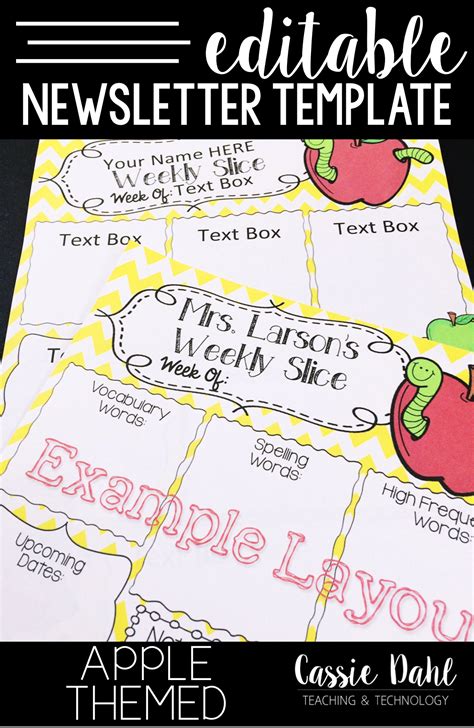 editable
NEWSLETTER TEMPLATE
Your Name HERE
Weekly Slice
Week Of: Text Box
Text Box
Text Box
Text Box
Mrs. Larson's
Weekly Slice
Week Of:
Vocabulary
Words:
Spelling
Words:
High Freque
Words:
Example Layou
Upcoming
Dates:
APPLE
THEMED
Cassie Dahl
TEACHING & TECHNOLOGY